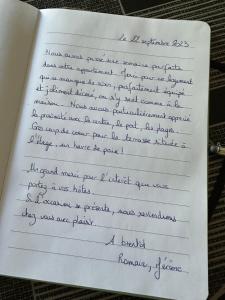 Le 22 septembre 2023
Nous avons passé une semaine parfaite
dans votre appartement. Merci pour ce logement
qui ne manque de rien, parfaitement équipé
et joliment décoré, on s'y sent comme à la
maison. Nous avons particulièrement apprécié
la proximité avec le centre, le port, les plages.
Gros coup de coeur pour la terrasse située à
l'étage, un havre de paix !
Un grand merci pour l'intérêt que vous
portez à vos hôtes.
Si l'occasion se présente, nous reviendrons
chez vous avec plaisir.
A bientôt
Romain, Jérôme